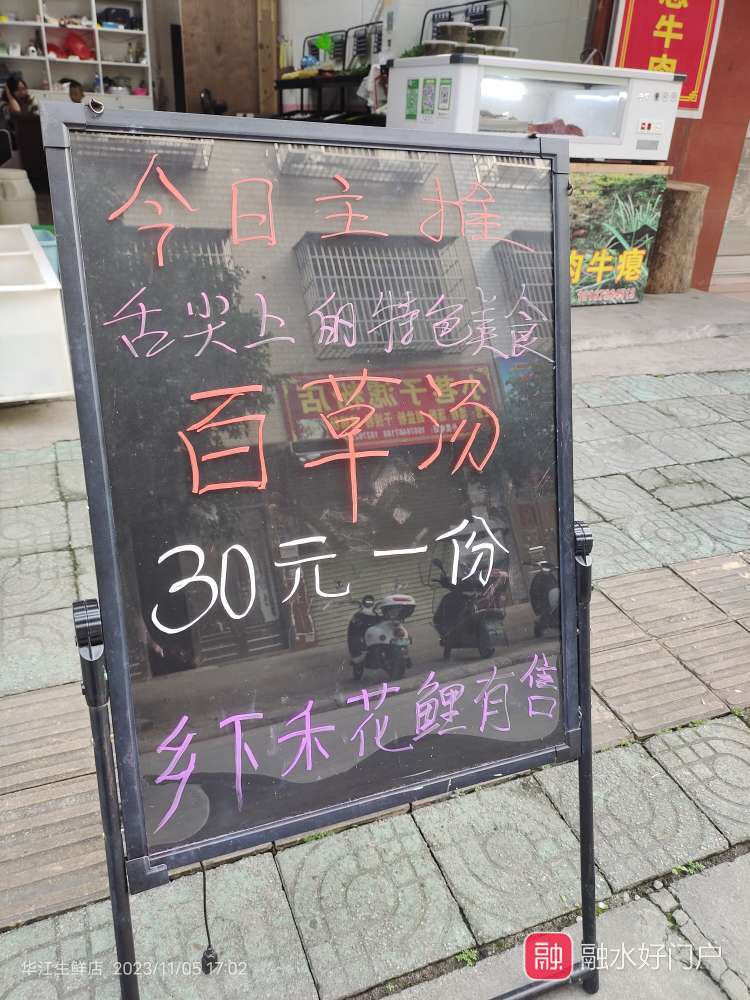 今日主推
舌尖上的特色美食
百草汤
30元一份
乡下禾花鲤有售
牛肉
肉牛瘪
华江生鲜店 2023/11/05 17:02
融 融水好门户